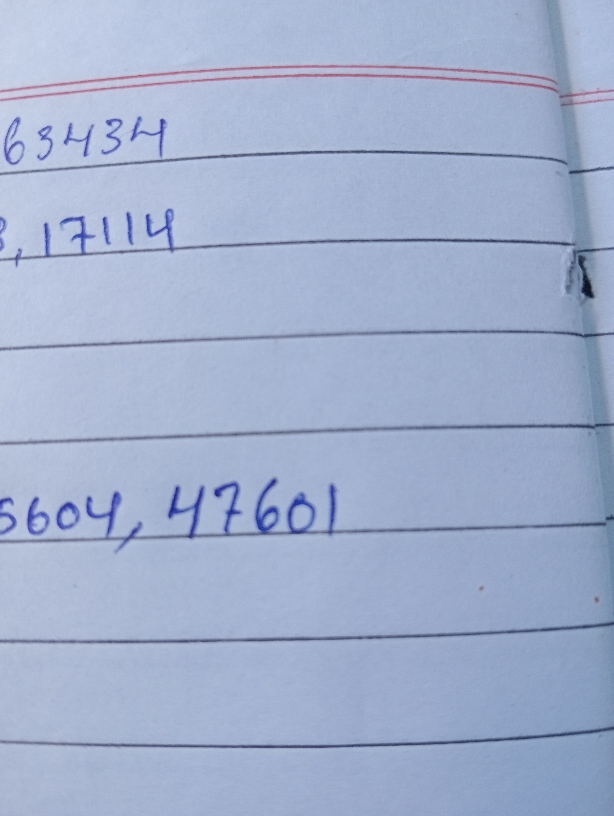 63434
, 17114
5604, 47601